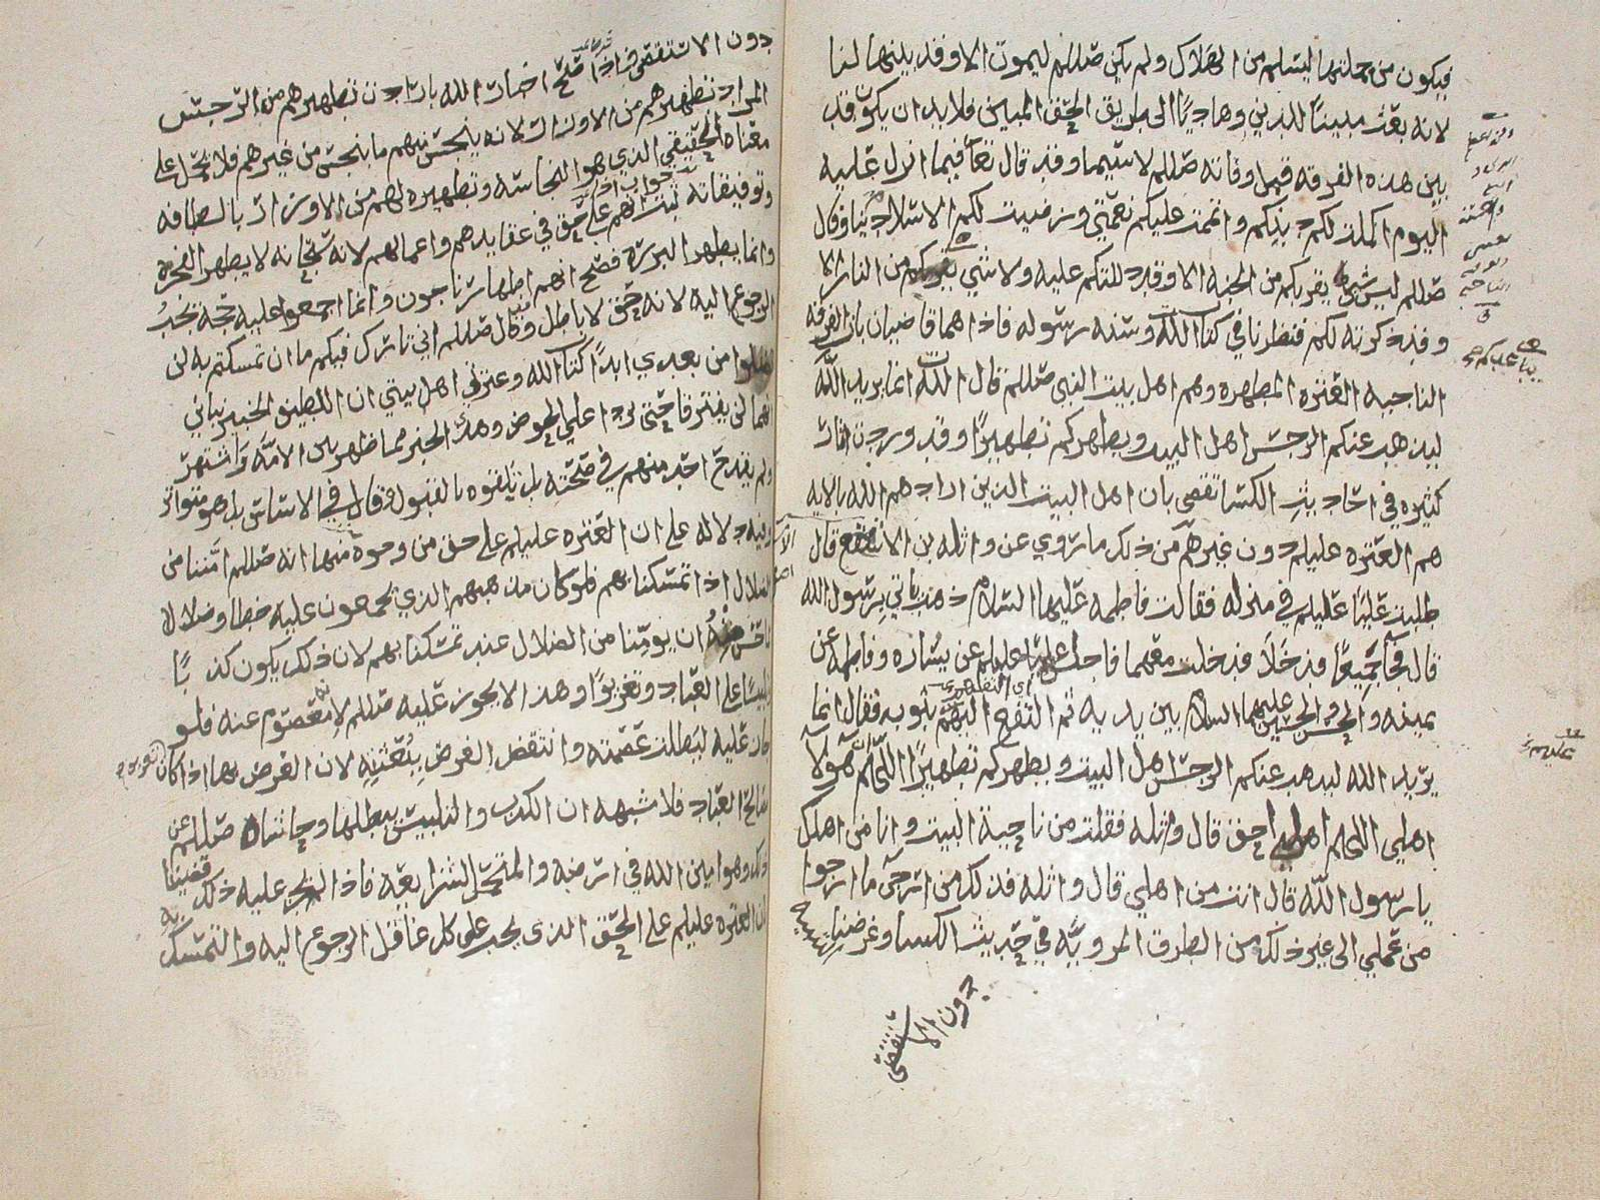 فيكون من جملتها ليسلم من الهلاك ولم يكن صللم ليموت الا وقد بينها لنا
لانه بعث مبينا للدين وهاديا الى طريق الحق المبين فلا بد ان يكون قد
بين هذه الفرقه قبل وفاته صللم لا سيما وقد قال تعا فيما انزل عليه
اليوم اكملت لكم دينكم واتممت عليكم نعمتي ورضيت لكم الاسلام دينا وقال
صللم ليس شي يقربكم من الجنه الا وقد دللتكم عليه ولا شي يقربكم من النار الا
وقد ذكرته لكم فنظرنا في كتاب الله وسنه رسوله فاذا هما قاضيان بان الفرقه
الناجيه العتره المطهره وهم اهل بيت النبي صللم قال الله انما يريد الله
ليذهب عنكم الرجس اهل البيت ويطهركم تطهيرا وقد وردت اثار
كثيره في احاديث الكسا تقضي بان اهل البيت الذين ارادهم الله بالايه
هم العتره عليلم دون غيرهم من ذلك ما روي عن واثله بن الاسقع قال
طلبت عليا عليلم في منزله فقالت فاطمه عليها السلام ذهب ياتي برسول الله
قال فجا جميعا فدخلا فدخلت معهما فاجلس عليا عليلم عن يساره وفاطمه عن
يمينه والحسن والحسين عليهما السلام بين يديه ثم التفع اليهم بثوبه فقال انما
يريد الله ليذهب عنكم الرجس اهل البيت ويطهركم تطهيرا اللهم ان هولا
اهلي اللهم اهلي احق قال واثله فقلت من ناحية البيت وانا من اهلك
يا رسول الله قال انت من اهلي قال واثله فذلك من ارجى ما ارجوا
من عملي الى غير ذلك من الطرق المرويه في حديث الكسا وغرضنا
دون الاستقصى
دون الاستقصى فاذا صح اخبار الله بارادة تطهيرهم من الرجس
المراد تطهيرهم من الاوزار لانه ينجس منهم ما ينجس من غيرهم فلا يحمل على
معناه الحقيقي الذي هو النجاسه وتطهيره لهم من الاوزار بالطافه
وتوفيقاته ثبت انهم على حق في عقايدهم واعمالهم لانه تعا لا يطهر الفجره
وانما يطهر البرره فصح انهم اطهار ناجون وانما اجمعوا عليه حجة يجب
الرجوع اليه لانه حق لا باطل وقال صللم اني تارك فيكم ما ان تمسكتم به لن
تضلوا من بعدي ابدا كتاب الله وعترتي اهل بيتي ان اللطيف الخبير نباني
انهما لن يفترقا حتى يردا علي الحوض وهذا الخبر مما ظهر بين الامه واشتهر
ولم يقدح احد منهم في صحته بل تلقوه بالقبول قال في الاساس بل هو متواتر
وفيه دلاله على ان العتره عليلم على حق من وجوه منها انه صللم امننا من
الضلال اذا تمسكنا بهم فلو كان مذهبهم الذي يجمعون عليه خطا وضلالا
ان يومننا من الضلال عند تمسكنا بهم لان ذلك يكون كذبا
تلبيسا على العباد وتغريرا وهذا لا يجوز عليه صللم لانه معصوم عنه فلو
جاز عليه لبطلت عصمته وانتقض الغرض ببعثته لان الغرض بها اذا كان
مصالح العباد فلا شبهه ان الكذب والتلبيس يبطلها وحاشاه صللم عن
ذلك وهو امين الله في ارضه والمتحمل لشرايعه فاذا عليه ذلك قضينا
ان العتره عليلم على الحق الذي يجب على كل عاقل الرجوع اليه والتمسك به